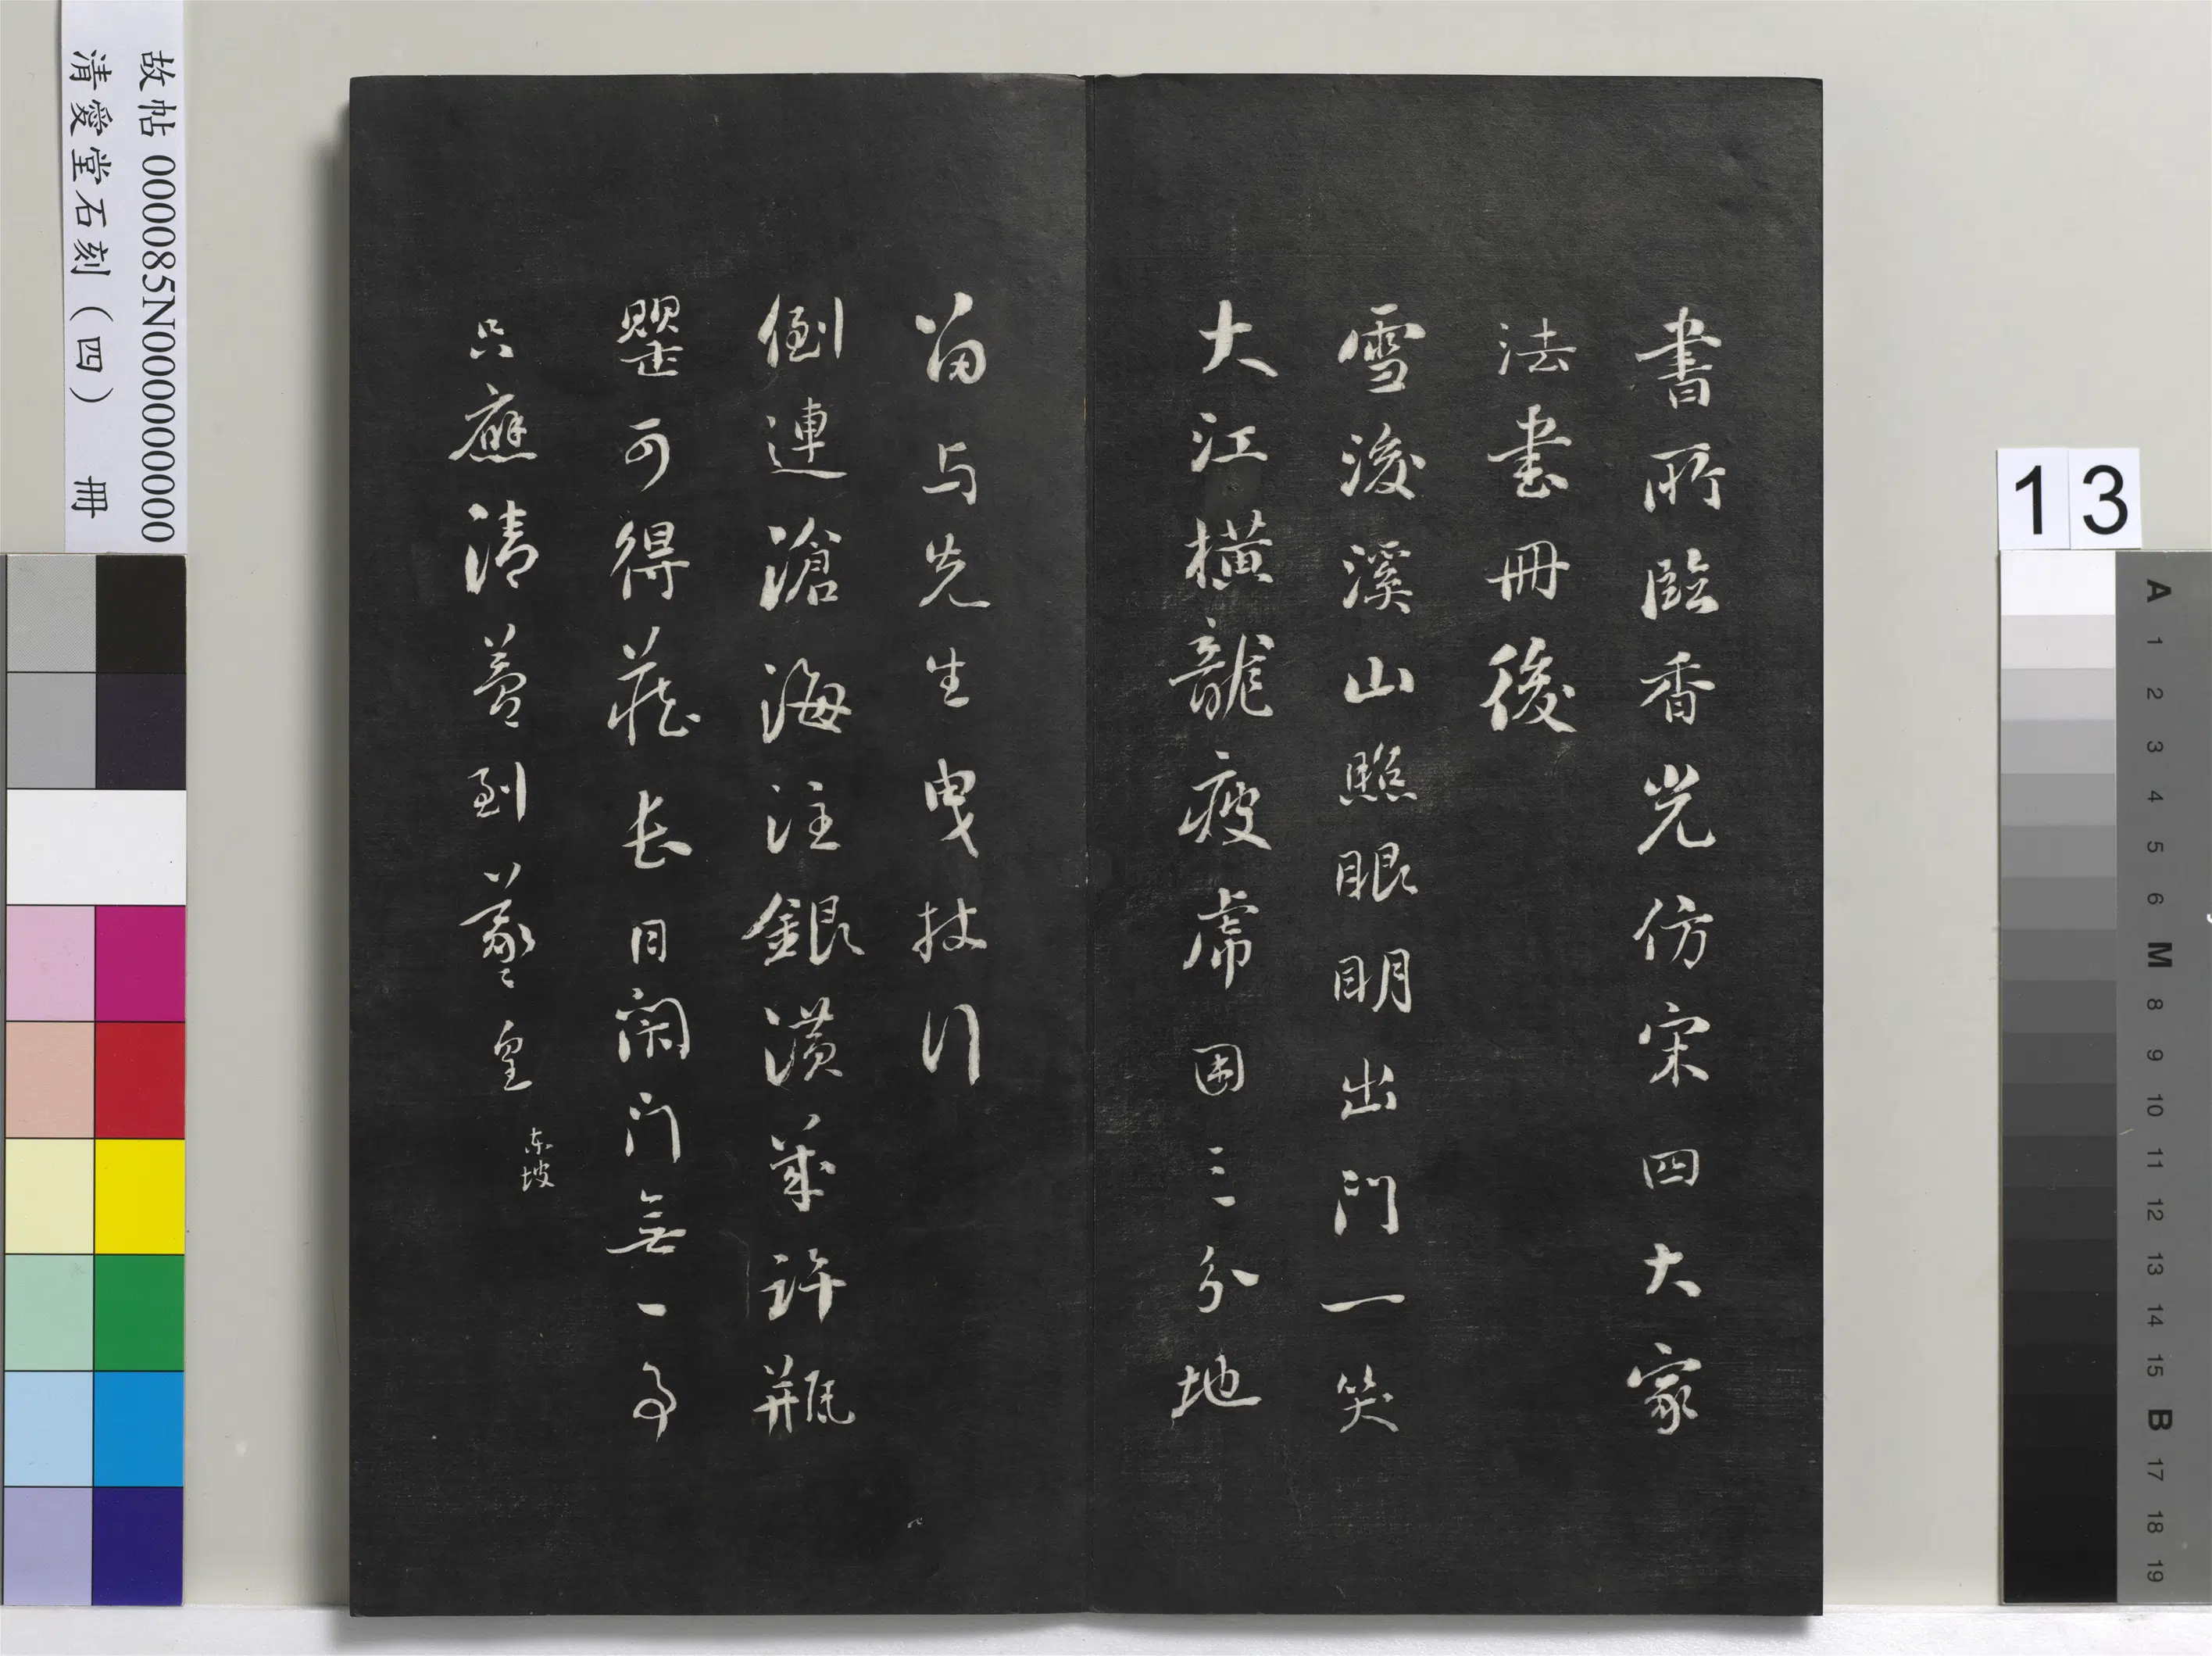 故帖 000085N000000000
清愛堂石刻（四） 冊
13
書所臨香光仿宋四大家
法書冊後
雪後溪山照眼明出門一笑
大江橫龍疲虎困三分地
留与先生曳杖行
倒連滄海注銀潢幾許瓶
罌可得藏長日閉门無一事
只應清夢到羲皇
东坡
A
1
2
3
4
5
6
M
8
9
10
11
12
13
14
15
B
17
18
19